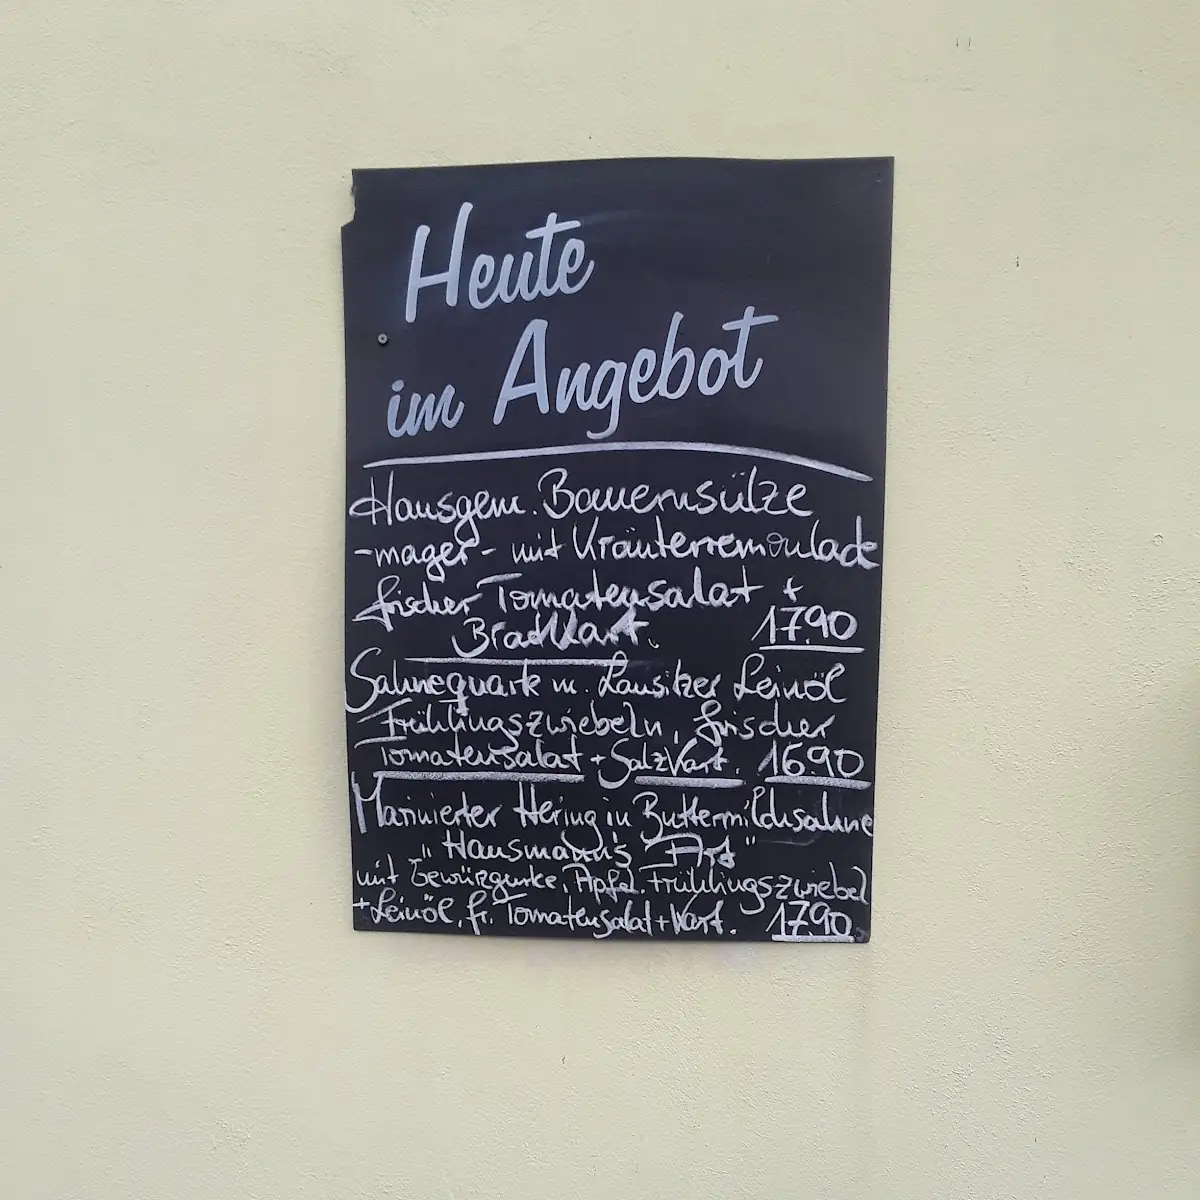 Heute
im Angebot
Hausgem. Bauernsülze
-mager- mit Kräuterremoulade
frischer Tomatensalat +
Bratkart. 17.90
Sahnequark m. Lausitzer Leinöl
Frühlingszwiebeln, frischer
Tomatensalat + Salzkart. 16.90
Marinierter Hering in Buttermilchsahne
"Hausmanns Art"
mit Gewürzgurke, Apfel, Frühlingszwiebel
+ Leinöl, fr. Tomatensalat + Kart. 17.90